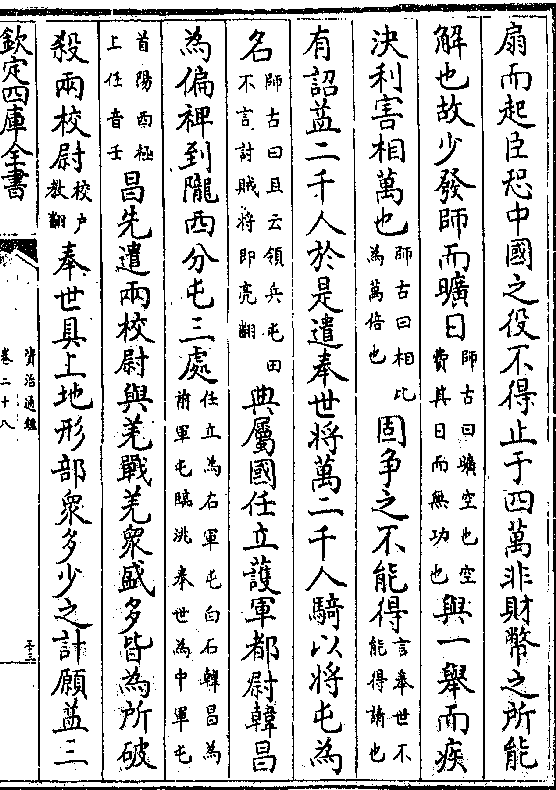 扇而起臣恐中國之役不得止于四萬非財幣之所能
解也故少發師而曠日師古曰曠空也空費其日而無功也與一舉而疾
決利害相萬也師古曰相比為萬倍也固爭之不能得言奉世不能得請也
有詔益二千人於是遣奉世將萬二千人騎以將屯為
名師古曰且云領兵屯田不言討賊將即亮翻典屬國任立護軍都尉韓昌
為偏裨到隴西分屯三處任立為右軍屯白石韓昌為前軍屯臨洮奉世為中軍屯
首陽西極上任音壬昌先遣兩校尉與羌戰羌衆盛多皆為所破
殺兩校尉校户教翻奉世具上地形部衆多少之計願益三
欽定四庫全書
資治通鑑
卷二十八